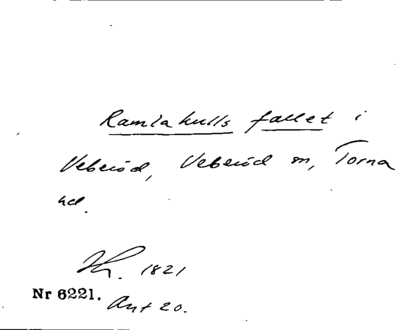 Ramlakulls fallet i
Veberöd, Veberöd sn, Torna
hd.
1821
Nr 6221. Ant 20.